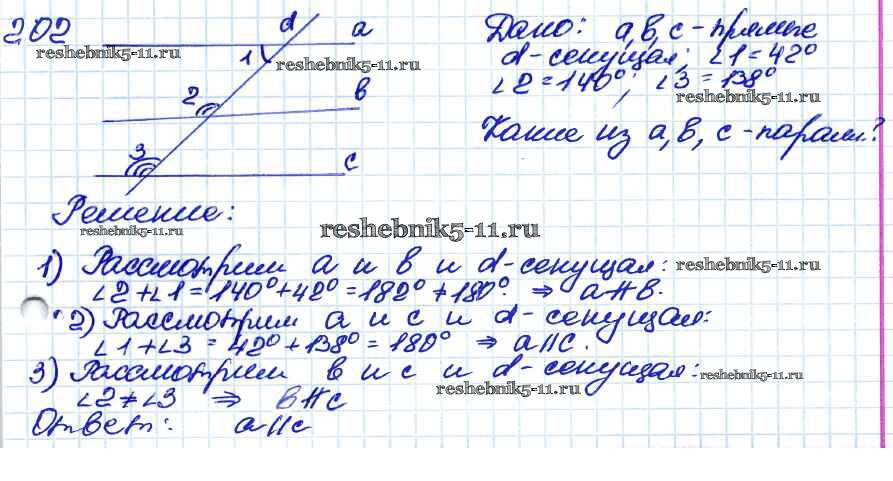 202
d a
reshebnik5-11.ru
1
reshebnik5-11.ru
2 в
3 с
Дано: a, в, с - прямые
d - секущая; ∠1 = 42°
∠2 = 140°; ∠3 = 138°
reshebnik5-11.ru
Какие из a, в, с - парал.?
Решение:
reshebnik5-11.ru
reshebnik5-11.ru
1) Рассмотрим а и в и d - секущая:
reshebnik5-11.ru
∠2 + ∠1 = 140° + 42° = 182° ≠ 180° ⇒ a ∦ в.
2) Рассмотрим а и с и d - секущая:
∠1 + ∠3 = 42° + 138° = 180° ⇒ a || с.
3) Рассмотрим в и с и d - секущая:
reshebnik5-11.ru
∠2 ≠ ∠3 ⇒ в ∦ с
reshebnik5-11.ru
Ответ: a || с